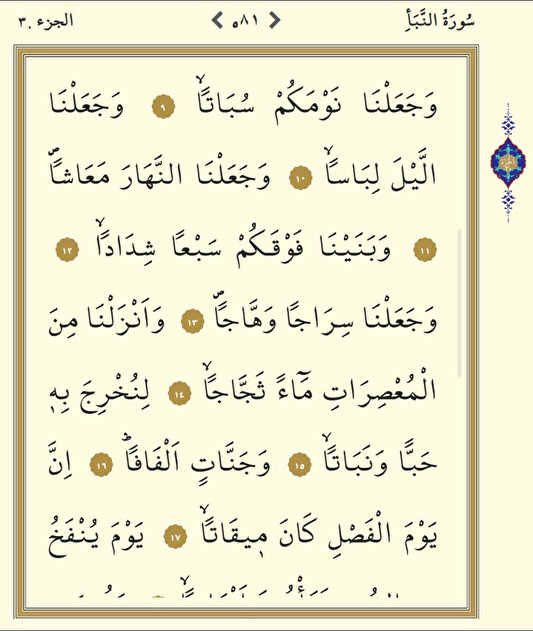 سُورَةُ النَّبَأِ ٥٨١ الجزء ٣٠
وَجَعَلْنَا نَوْمَكُمْ سُبَاتًاۙ ٩ وَجَعَلْنَا
الَّيْلَ لِبَاسًاۙ ١٠ وَجَعَلْنَا النَّهَارَ مَعَاشًاۖ
١١ وَبَنَيْنَا فَوْقَكُمْ سَبْعًا شِدَادًاۙ ١٢
وَجَعَلْنَا سِرَاجًا وَهَّاجًاۖ ١٣ وَاَنْزَلْنَا مِنَ
الْمُعْصِرَاتِ مَٓاءً ثَجَّاجًاۙ ١٤ لِنُخْرِجَ بِه۪
حَبًّا وَنَبَاتًاۙ ١٥ وَجَنَّاتٍ اَلْفَافًاۜ ١٦ اِنَّ
يَوْمَ الْفَصْلِ كَانَ م۪يقَاتًاۙ ١٧ يَوْمَ يُنْفَخُ